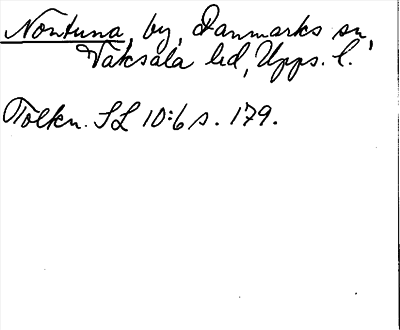 Nontuna, by, Danmarks sn,
Vaksala hd, Upps. l.
Tolkn. SL 10:6 s. 179.